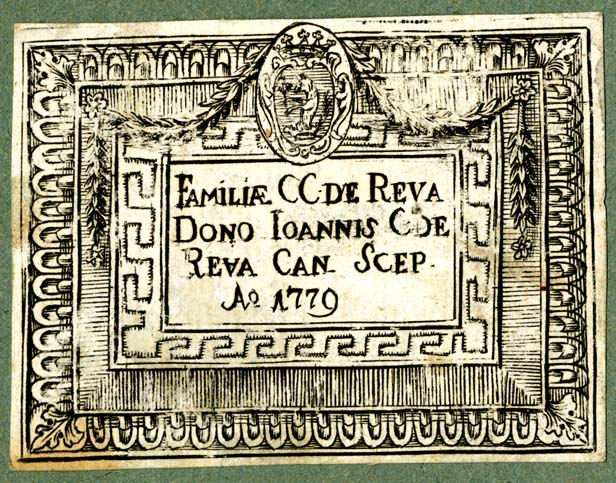 FAMILIÆ CC·DE REVA
DONO IOANNIS C·DE
REVA CAN. SCEP.
Aº 1779